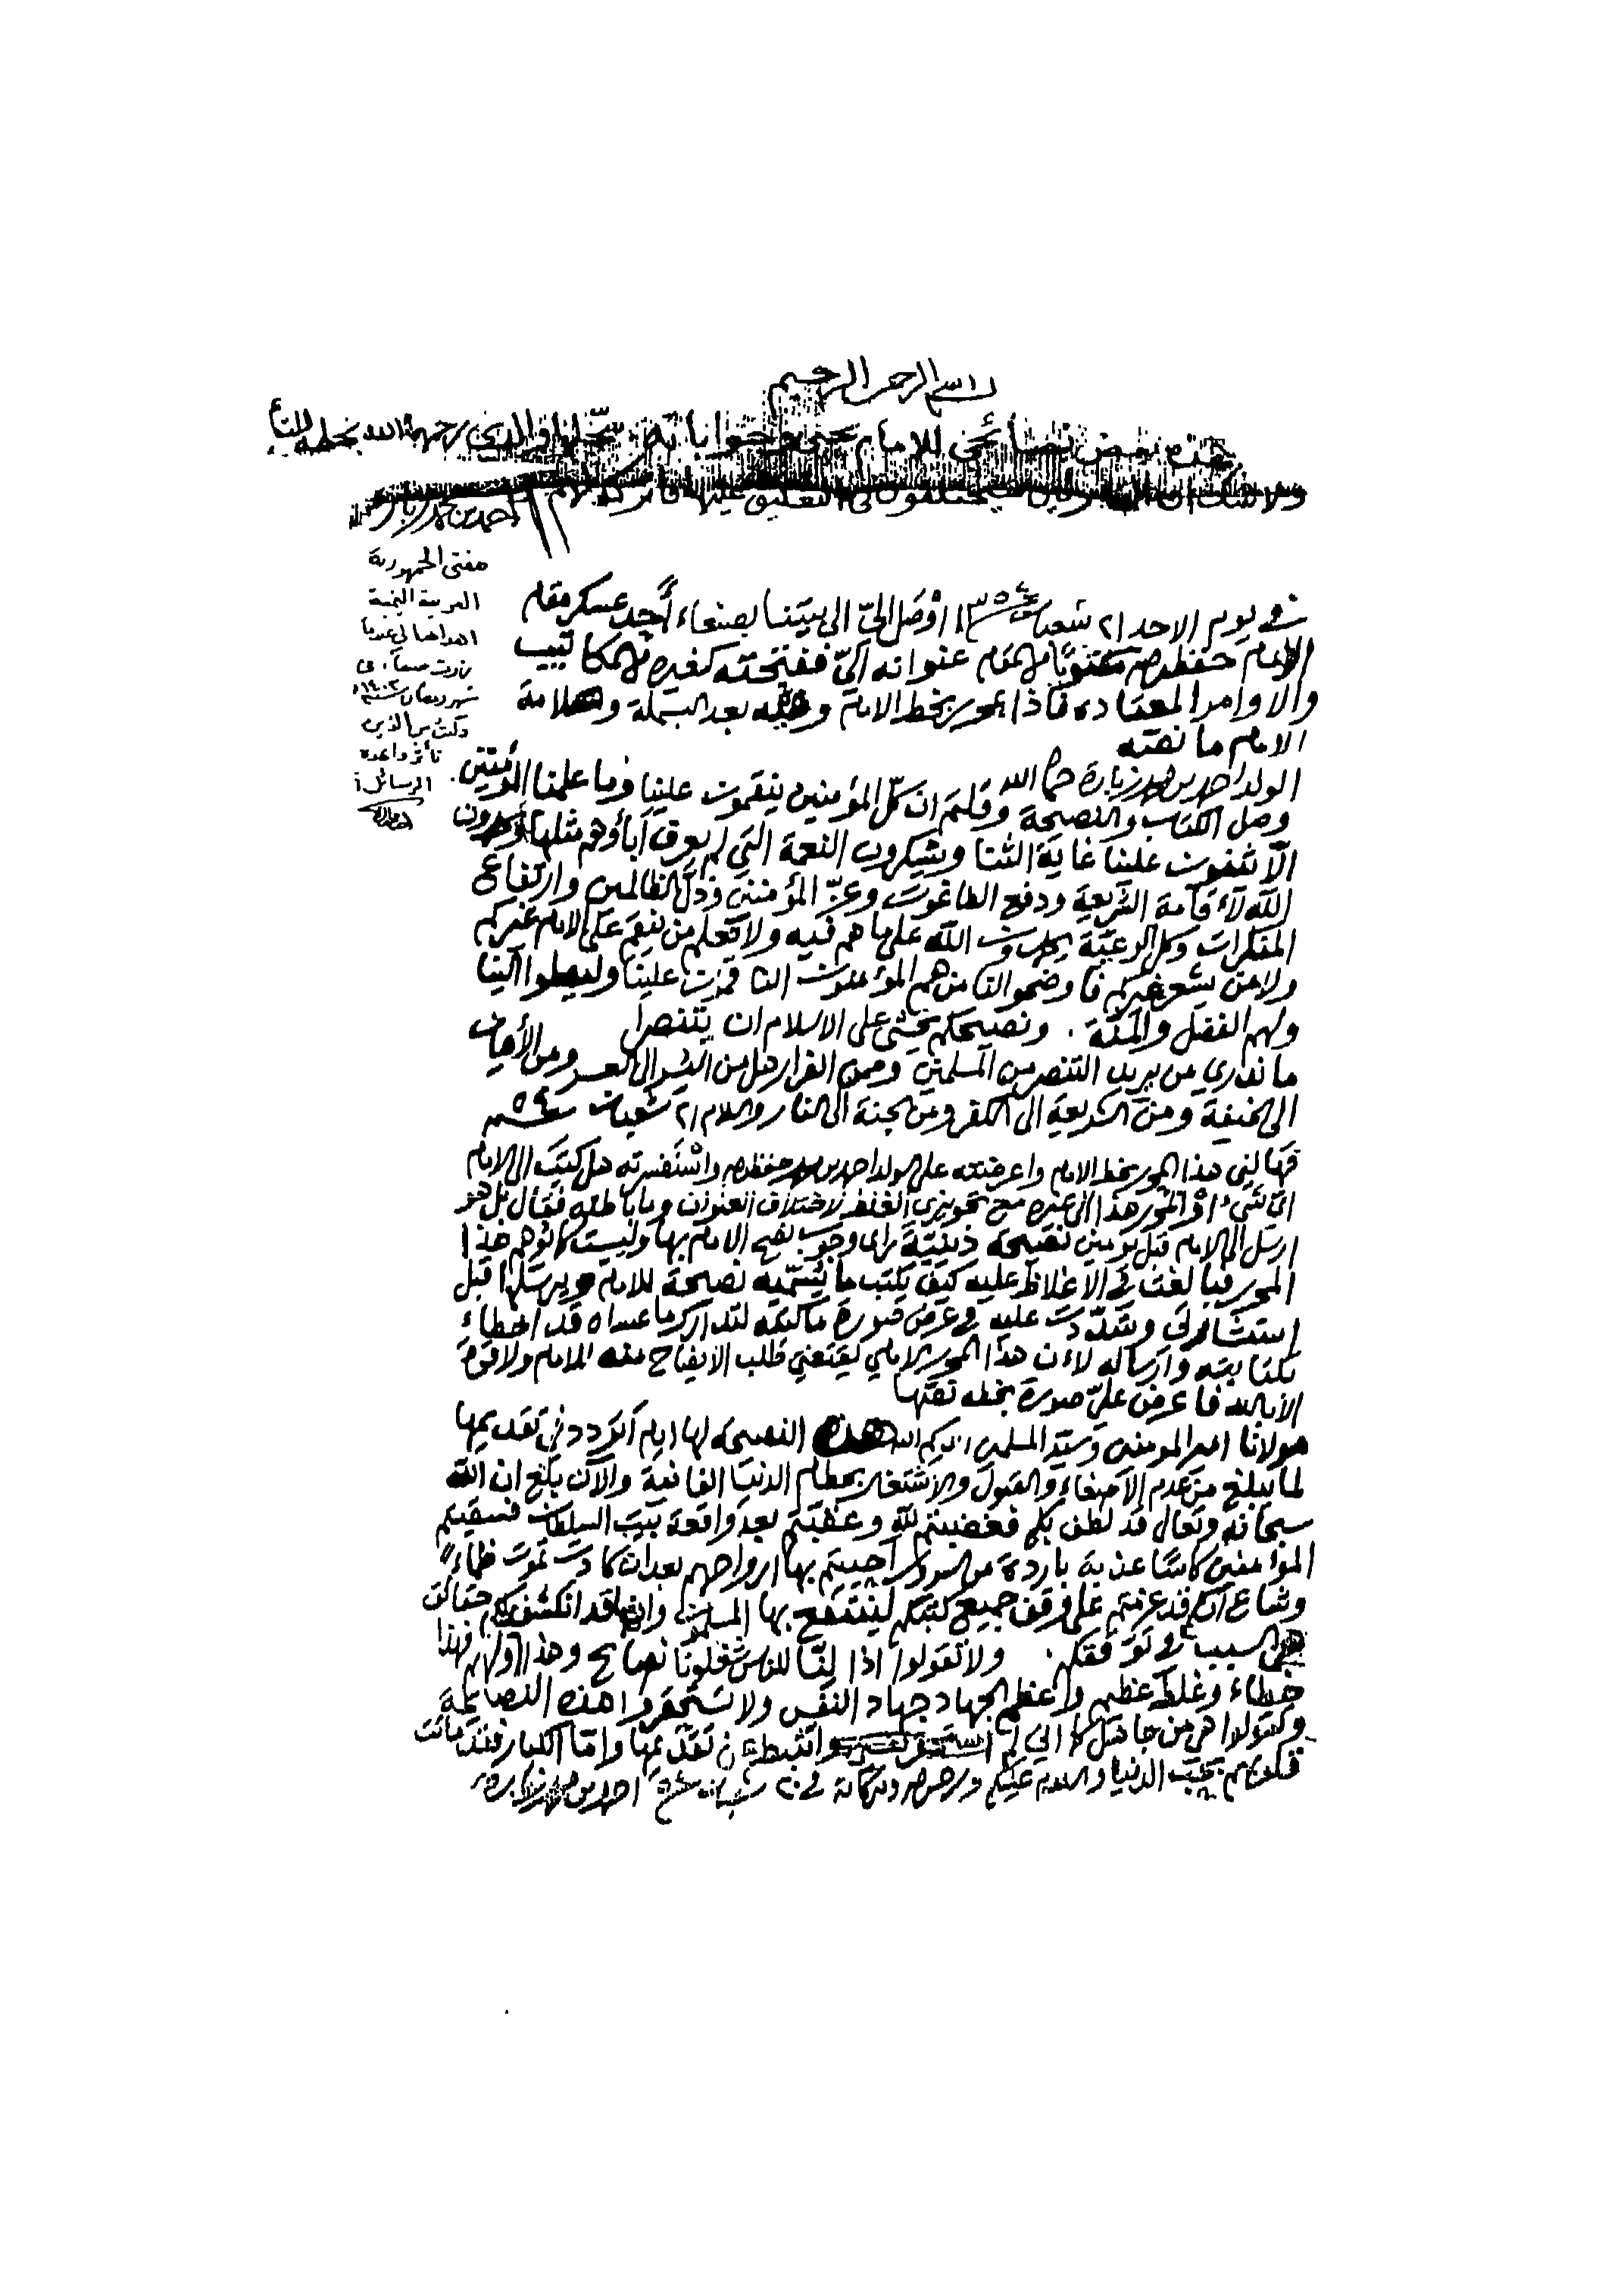 بسم الله الرحمن الرحيم
هذه بعض نصائحي للامام يحيى وجواباته سجلها والدي رحمه الله بخطه
ولا شك ان يختلفون في التعليق عليها
احمد بن محمد زبارة
مفتي الجمهورية
العربية اليمنية
اهداها لي عندما
زرت صنعاء في
شهر رمضان ١٤٠٢
وكنت من الذين
في يوم الاحد ٢١ شعبان سنة ١٣٥٤ اوصل اليّ الى بيتنا بصنعاء أحد عسكر مقام
الامام حفظه الله مكتوبًا من المقام عنوانه اليّ ففتحته كغيره من المكاتيب
والاوامر المعتاده فاذا المحرر بخط الامام وفيه بعد البسملة وعلامة
الامام ما نصه
الولد احمد بن محمد زبارة حماه الله
وصل الكتاب والنصيحة وقلتم ان كلّ المؤمنين ينقمون علينا وما علمنا المؤمنين
الّا يثنون علينا غاية الثنا ويشكرون النعمة التي لم يعرف آباؤهم مثلها ويحمدون
الله لاقامة الشريعة ودفع الطاغوت وعزّ المؤمنين وذل الظالمين وارتفاع
المنكرات وكل الرعيّة يحمدون الله على ما هم فيه ولا نعلم من ينقم على الامام غيركم
ولا من يشعر غيركم فاوضحوا لنا من هم المؤمنون الناقمون علينا وليصلوا الينا
ولهم الفضل والمنّة . ونصيحتكم نخشى على الاسلام ان يتنصر
ما ندري من يريد التنصر من المسلمين وممن الفرار هل من اليسر الى العسر ومن الأمان
الى الخيفة ومن الشريعة الى الكفر ومن الجنة الى النار والسلام ٢١ شعبان سنة ٥٤
فهالني هذا المحرر بخط الامام واعرضته على الولد احمد بن محمد حفظه الله واستفسرته هل كتب الى الامام
ايّ شيء او المحرر هذا الى غيره مع تجويزي الغلط لاختلاف العنوان وما باطنه فقال بل هو
ارسل الى الامام قبل يومين نصيحة دينيّة راى وجوب نصح الامام بها وليست كما توهم هذا
المحرر فبالغت في الاغلاظ عليه كيف يكتب ما يسمّيه نصيحة للامام ويرسلها قبل
استشارتي وشدّدت عليه في عرض صورة ما كتبه لتدارك ما عساه قد اخطاء
بكتابته وارساله لان هذا المحرر الامامي يقتضي طلب الايضاح منه للامام ولا قوة
الا بالله فاعرض عليّ صورة بخطه نصّها
مولانا امير المومنين وسيّد المسلمين ايدكم الله هذه النصيحه لها ايام اتردد في تقديمها
لما يبلغ من عدم الاصغاء والقبول والاشتغال بحطام الدنيا الفانية والآن بلغ ان الله
سبحانه وتعالى قد لطف بكم فغضبتم لله وعفيتم بعد واقعة بيت السلطان فسقيتم
المؤمنين كاسًا عذبة باردة من السرور احييتم بها ارواحهم بعد ان كادت تموت ظماءً
وشاع انكم قد عزمتم على وقف جميع كتبكم لينتفع بها المسلمون وانها قد انكشفت لكم حقائق
هي السبب في توفقكم . ولا تقولوا اذا لنّا للناس شغلونا نصايح وهذا اولهم فهذا
خطاء وغلط عظيم واعظم الجهاد جهاد النفس ولا تستحقروا هذه النصايحة
وتقولوا هي من جاهل واثبط عن تقديمها وامّا الكبار فقد ماتت
قلوبهم بحب الدنيا والسلام عليكم ورحمة الله وبركاته في ٢٠ شعبان سنة ٥٤ احمد بن محمد زبارة